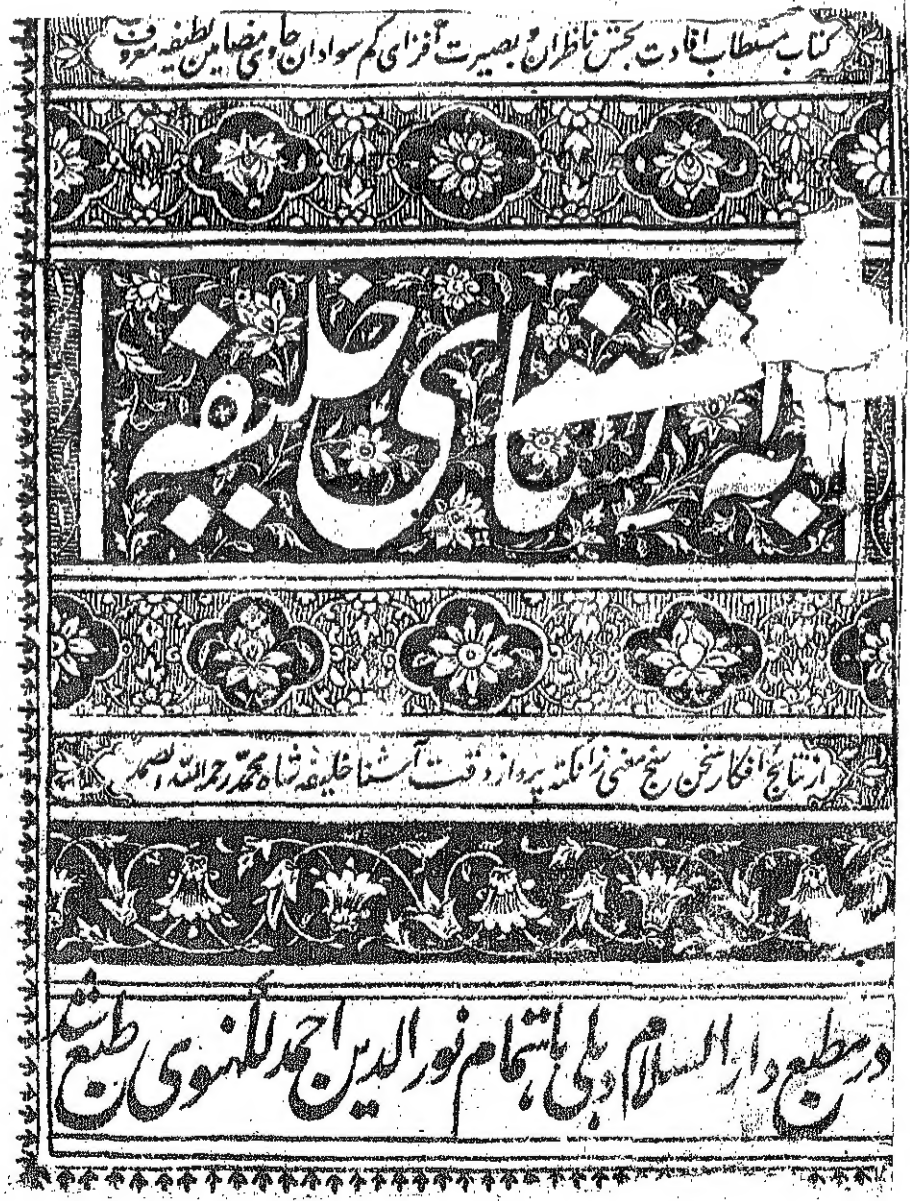 کتاب مستطاب افادت بخش ناظران و بصیرت افزای کم سوادان حاوی مضامین لطیفه معروف
به انشای خلیفه
از نتایج افکار سخن سنج معنی زا نکته پرداز دقت آشنا خلیفه شاه محمد رحمه الله الصمد
در مطبع دار السلام دہلی باہتمام نور الدین احمد لکہنوی طبع شد